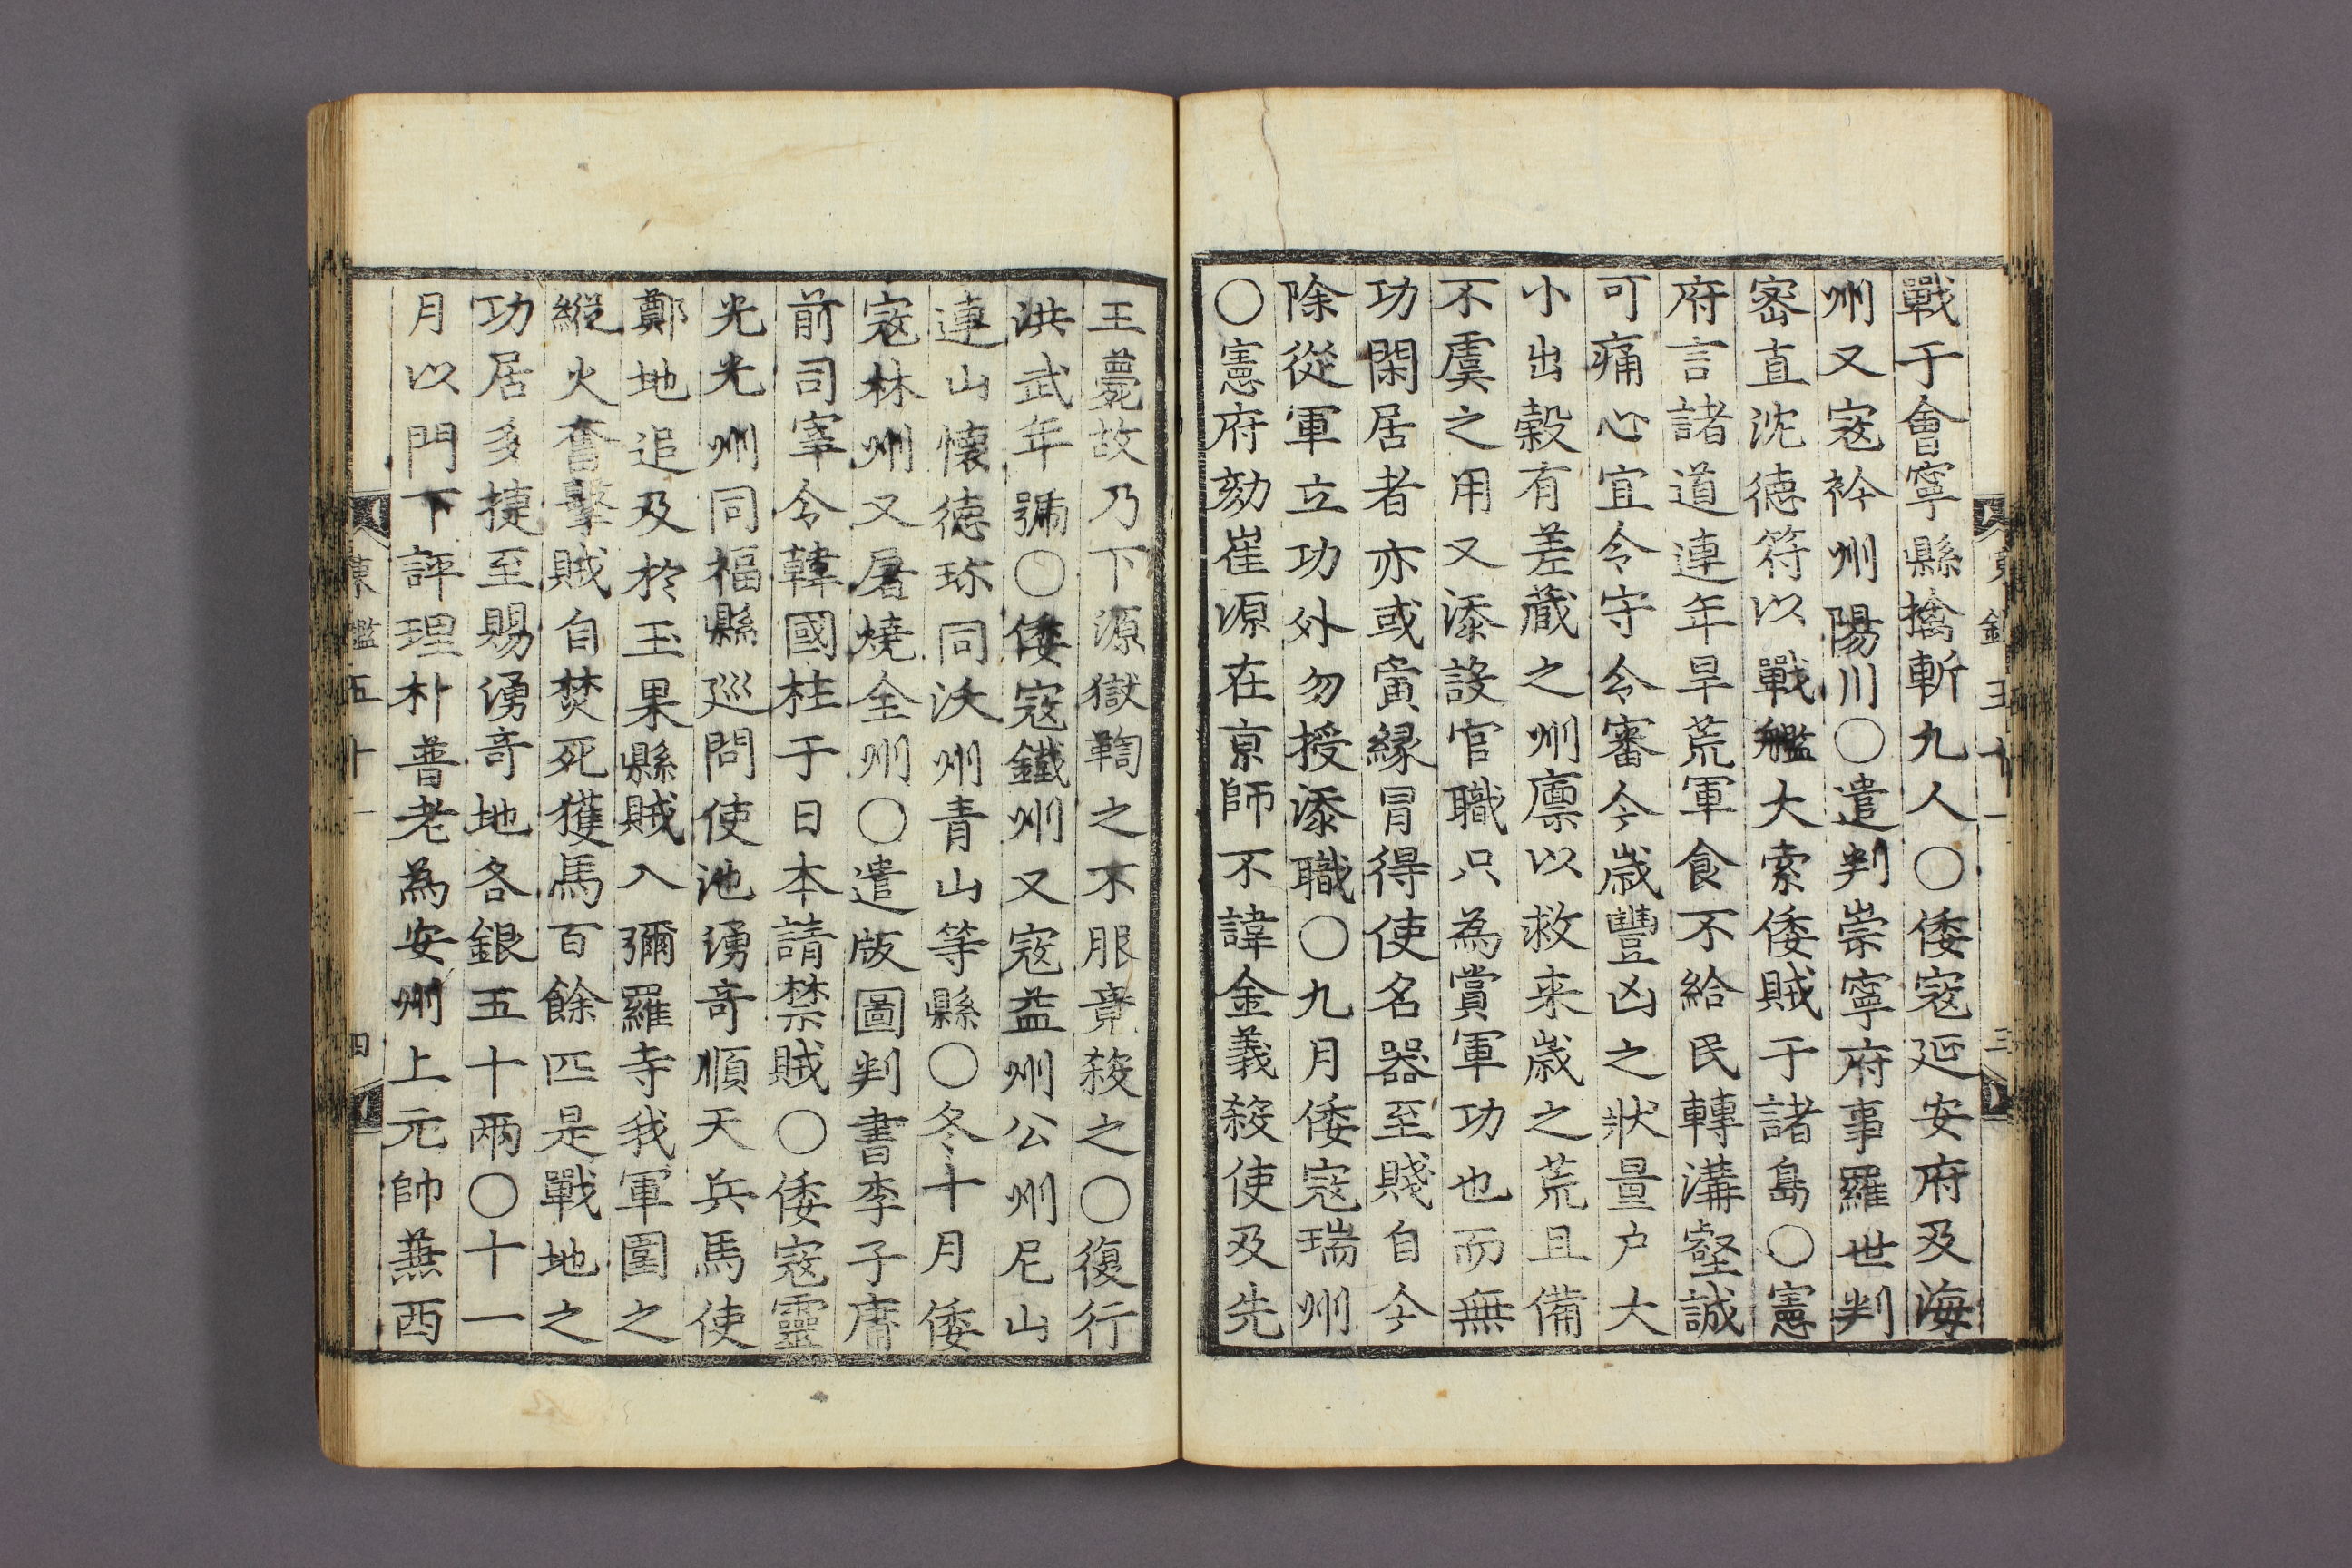 戰于會寧縣擒斬九人○倭寇延安府及海
州又寇衿州陽川○遣判崇寧府事羅世判
密直沈德符以戰艦大索倭賊于諸島○憲
府言諸道連年旱荒軍食不給民轉溝壑誠
可痛心宜令守令審今歲豐凶之狀量户大
小出穀有差藏之州廪以救来歲之荒且備
不虞之用又添設官職只為賞軍功也而無
功閑居者亦或夤縁冒得使名器至賤自今
除從軍立功外勿授添職○九月倭寇瑞州
○憲府劾崔源在京師不諱金義殺使及先
王薨故乃下源獄鞫之不服竟殺之○復行
洪武年號○倭寇鐵州又寇益州公州尼山
連山懷德珎同沃州青山等縣○冬十月倭
寇林州又屠燒全州○遣版圖判書李子庸
前司宰令韓國柱于日本請禁賊○倭寇靈
光光州同福縣廵問使池湧奇順天兵馬使
鄭地追及於玉果縣賊入彌羅寺我軍圍之
縱火奮擊賊自焚死獲馬百餘匹是戰地之
功居多捷至賜湧奇地各銀五十兩○十一
月以門下評理朴普老為安州上元帥兼西